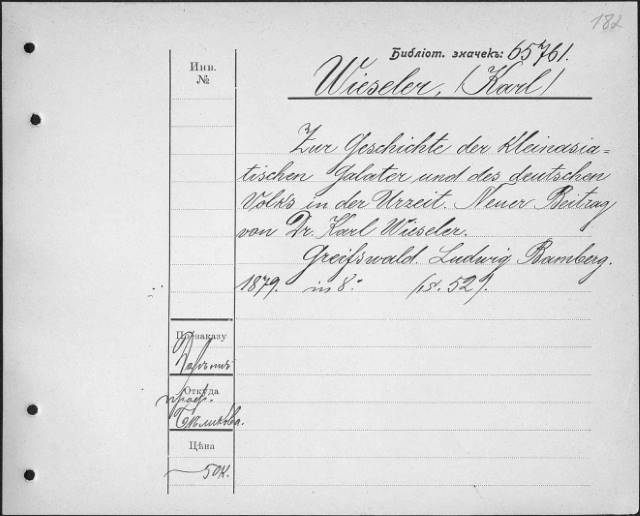 182
Библiот. значекъ: 65761.
Инв.
№
Wieseler, (Karl)
Zur Geschichte der Kleinasia=
tischen Galater und des deutschen
Volks in der Urzeit. Neuer Beitrag
von Dr. Karl Wieseler.
Greifswald. Ludwig Bamberg.
1879. in 8.° (S. 52).
По заказу
Откуда
проф.
Цѣна
50 к.